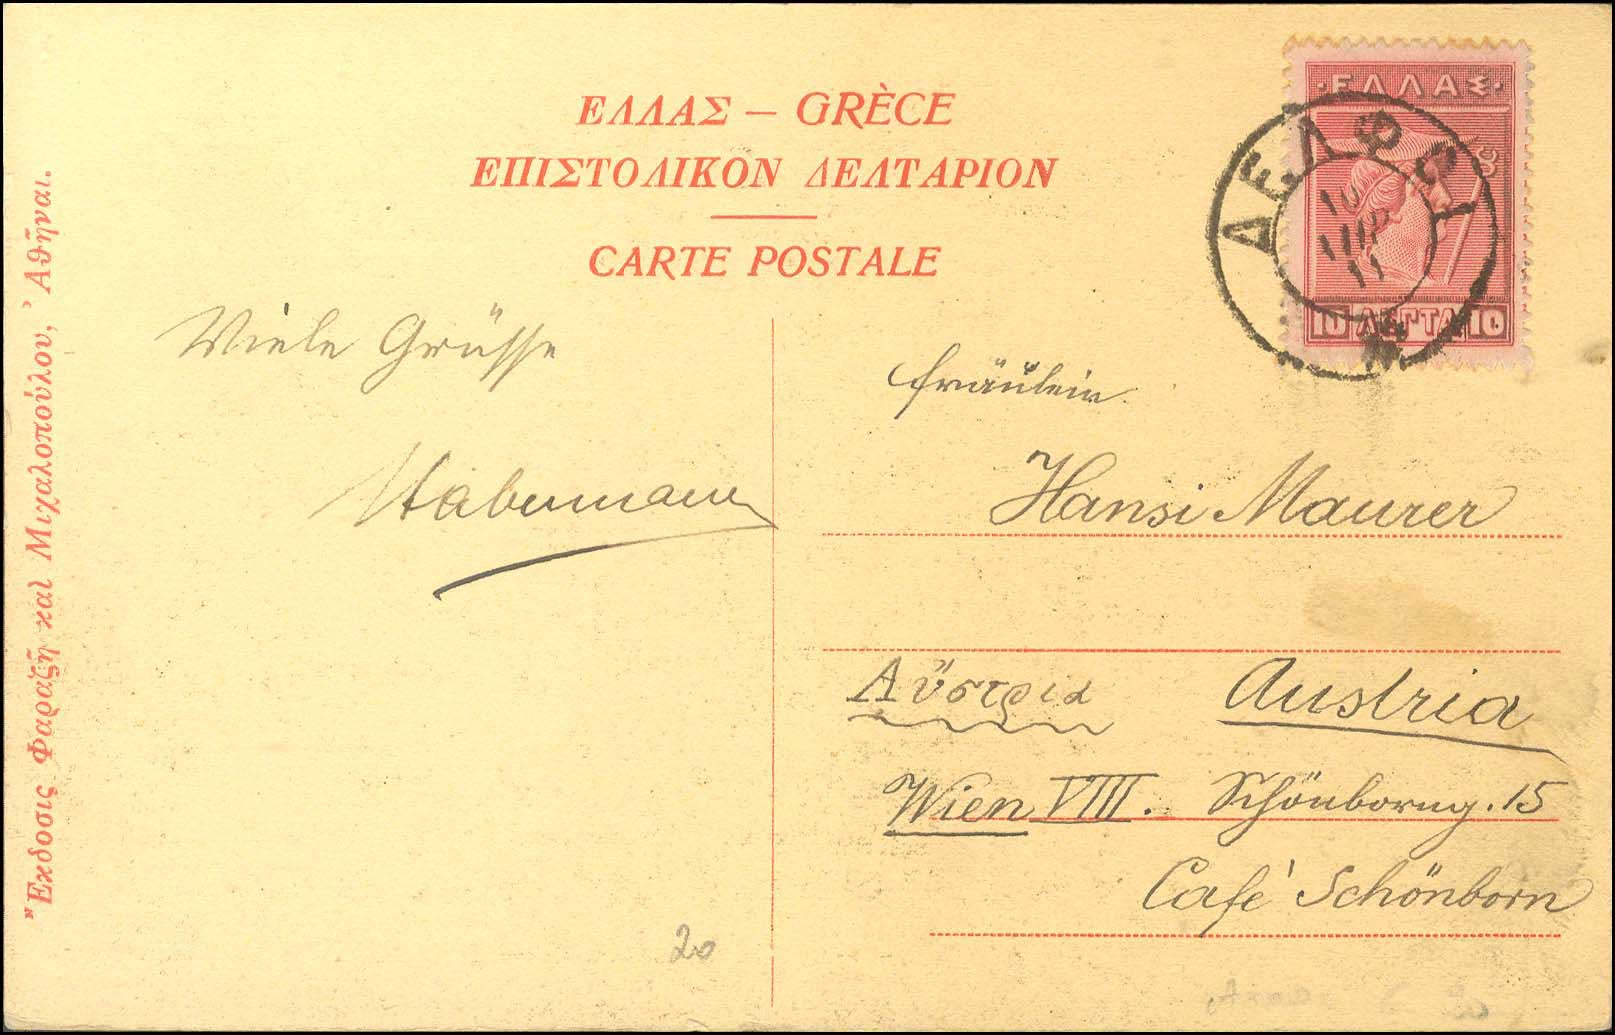 ΕΛΛΑΣ — GRÈCE
ΕΠΙΣΤΟΛΙΚΟΝ ΔΕΛΤΑΡΙΟΝ
CARTE POSTALE
·ΕΛΛΑΣ·
10 ΛΕΠΤΑ 10
ΔΕΛΦΟΙ
10
11
Viele Grüsse
Habermann
Fräulein
Hansi Maurer
Αὔστρια Austria
Wien VIII. Schönborng. 15
Café Schönborn
20
Ἔκδοσις Φαραζῆ καὶ Μιχαλοπούλου, Ἀθῆναι.